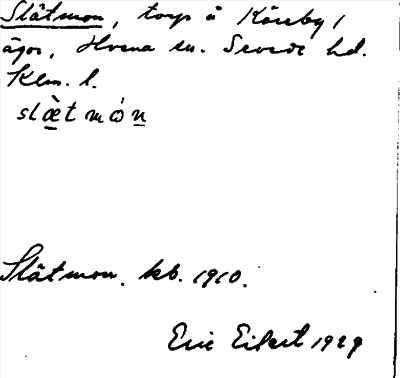 Slätmon, torp å Kåreby,
ägor, Hvena sn. Sevede hd.
Klm. l.
slæ̀tmón
Slätmon. kb. 1910.
Eric Eilert 1929